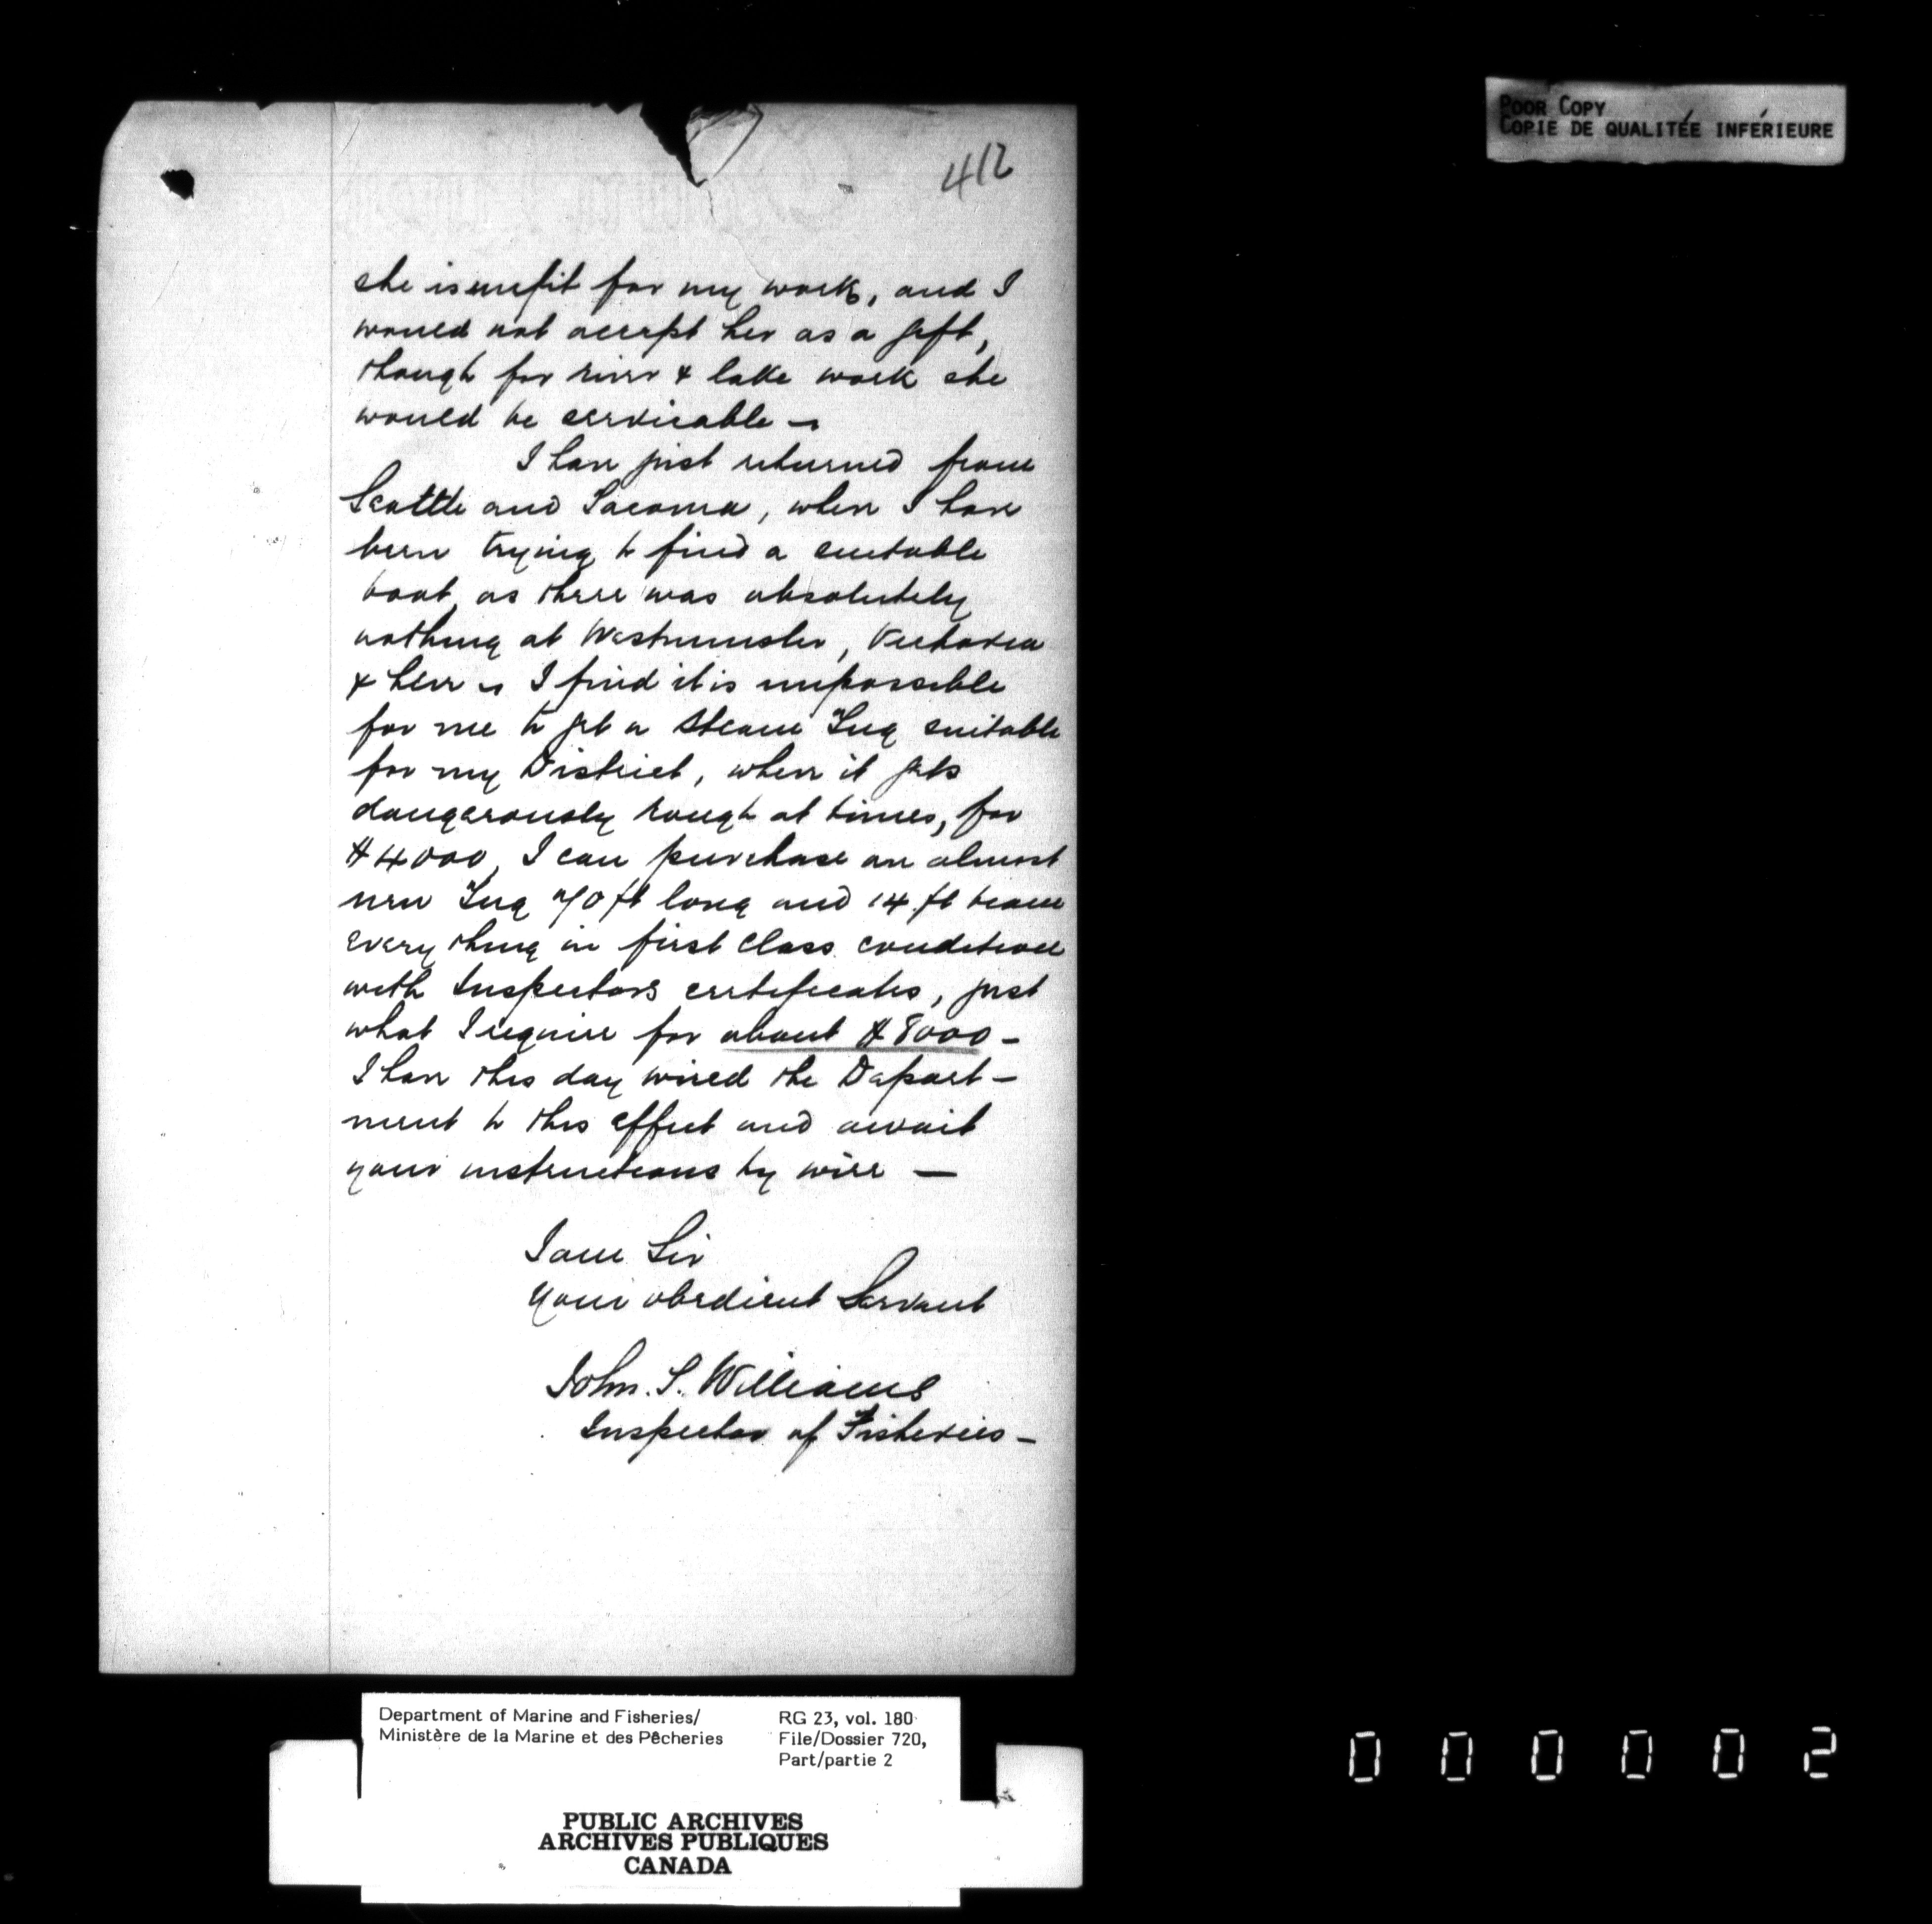 POOR COPY
COPIE DE QUALITÉE INFÉRIEURE
412
she is unfit for my work, and I
would not accept her as a gift,
though for river & lake work she
would be servicable –
I have just returned from
Seattle and Tacoma, where I have
been trying to find a suitable
boat, as there was absolutely
nothing at Westminster, Victoria
& here – I find it is impossible
for me to get a Steam Tug suitable
for my District, where it gets
dangerously rough at times, for
$4000, I can purchase an almost
new Tug 70 ft long and 14 ft beam
every thing in first class condition
with Inspectors certificates, just
what I require for about $8000 –
I have this day wired the Depart–
ment to this effect and await
your instructions by wire —
I am Sir
Your obedient Servant
John. S. Williams
Inspector of Fisheries –
Department of Marine and Fisheries/
Ministère de la Marine et des Pêcheries
RG 23, vol. 180
File/Dossier 720,
Part/partie 2
PUBLIC ARCHIVES
ARCHIVES PUBLIQUES
CANADA
0 0 0 0 0 2